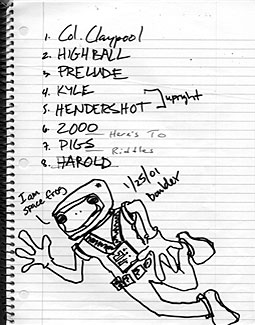 1. Col. Claypool
2. HIGHBALL
3. PRELUDE
4. KYLE
5. HENDERSHOT ] upright
6. 2000 — Here's To
7. PIGS — Riddles
8. HAROLD
I am
space frog
1/25/01
boulder